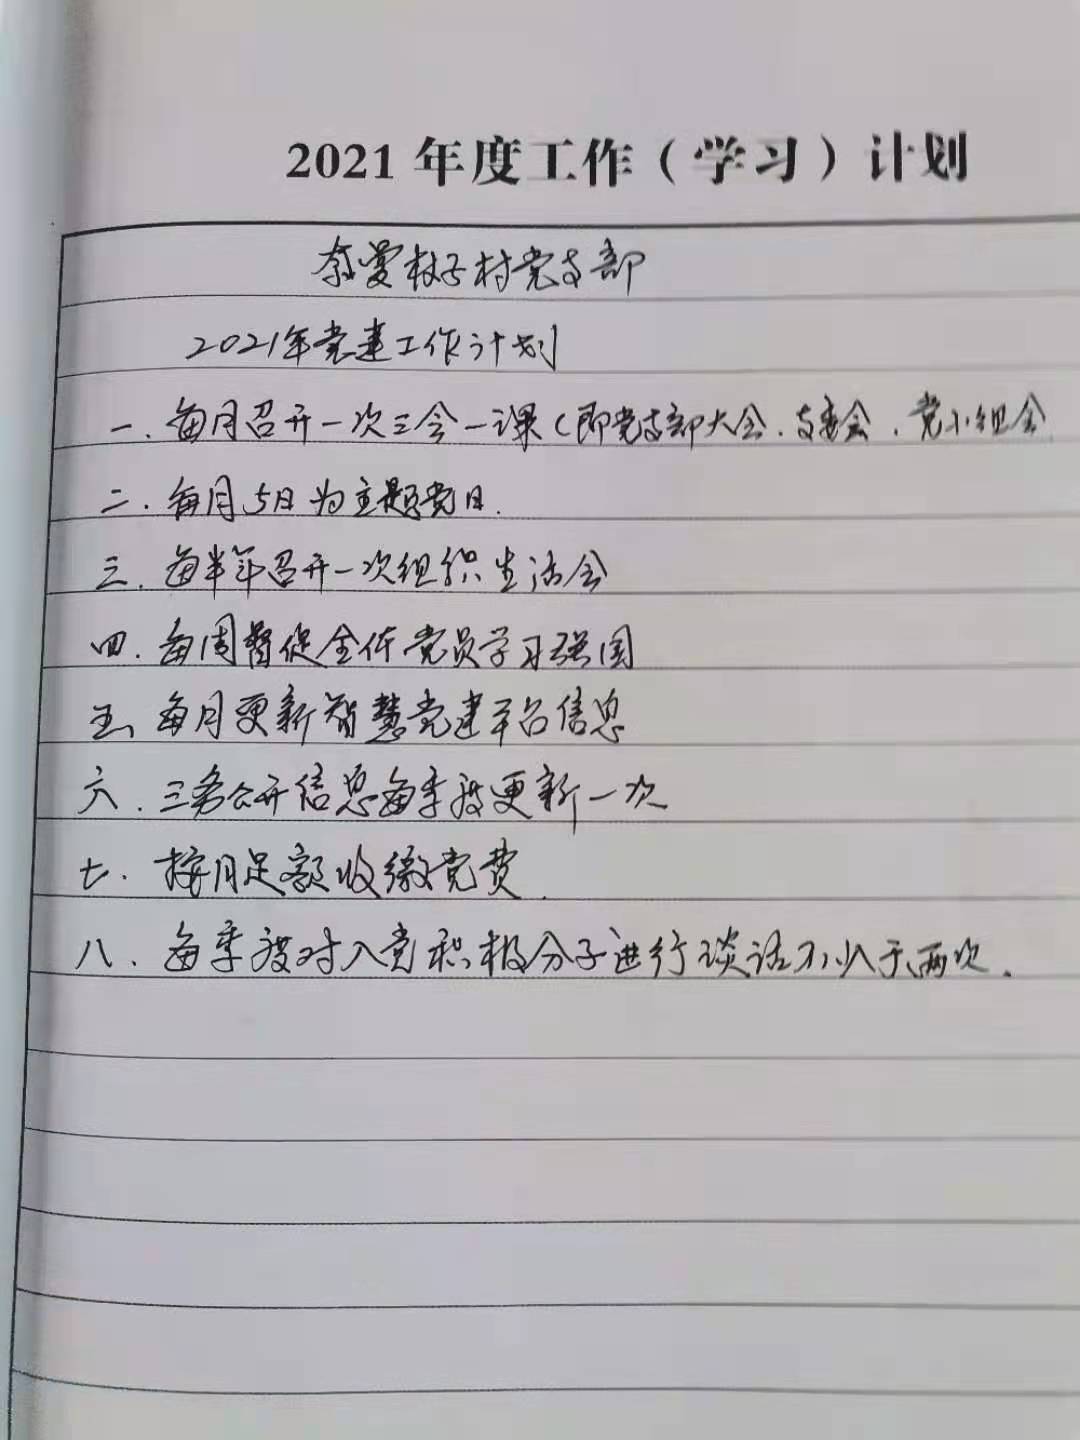 2021 年度工作（学习）计划
奈曼杖子村党支部
2021年党建工作计划
一．每月召开一次三会一课（即党支部大会．支委会．党小组会
二．每月5日为主题党日．
三．每半年召开一次组织生活会
四．每周督促全体党员学习强国
五、每月更新智慧党建平台信息
六．三务公开信息每季度更新一次
七．按月足额收缴党费．
八．每季度对入党积极分子进行谈话不少于两次．